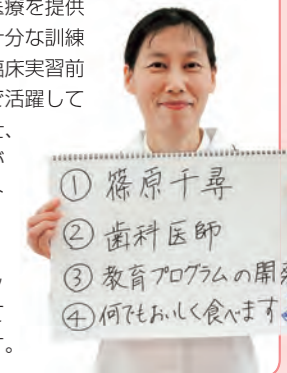 療を提供
分な訓練
臨床実習前
で活躍して
が
て
す。
① 篠原千尋
② 歯科医師
③ 教育プログラムの開発
④ 何でもおいしく食べます